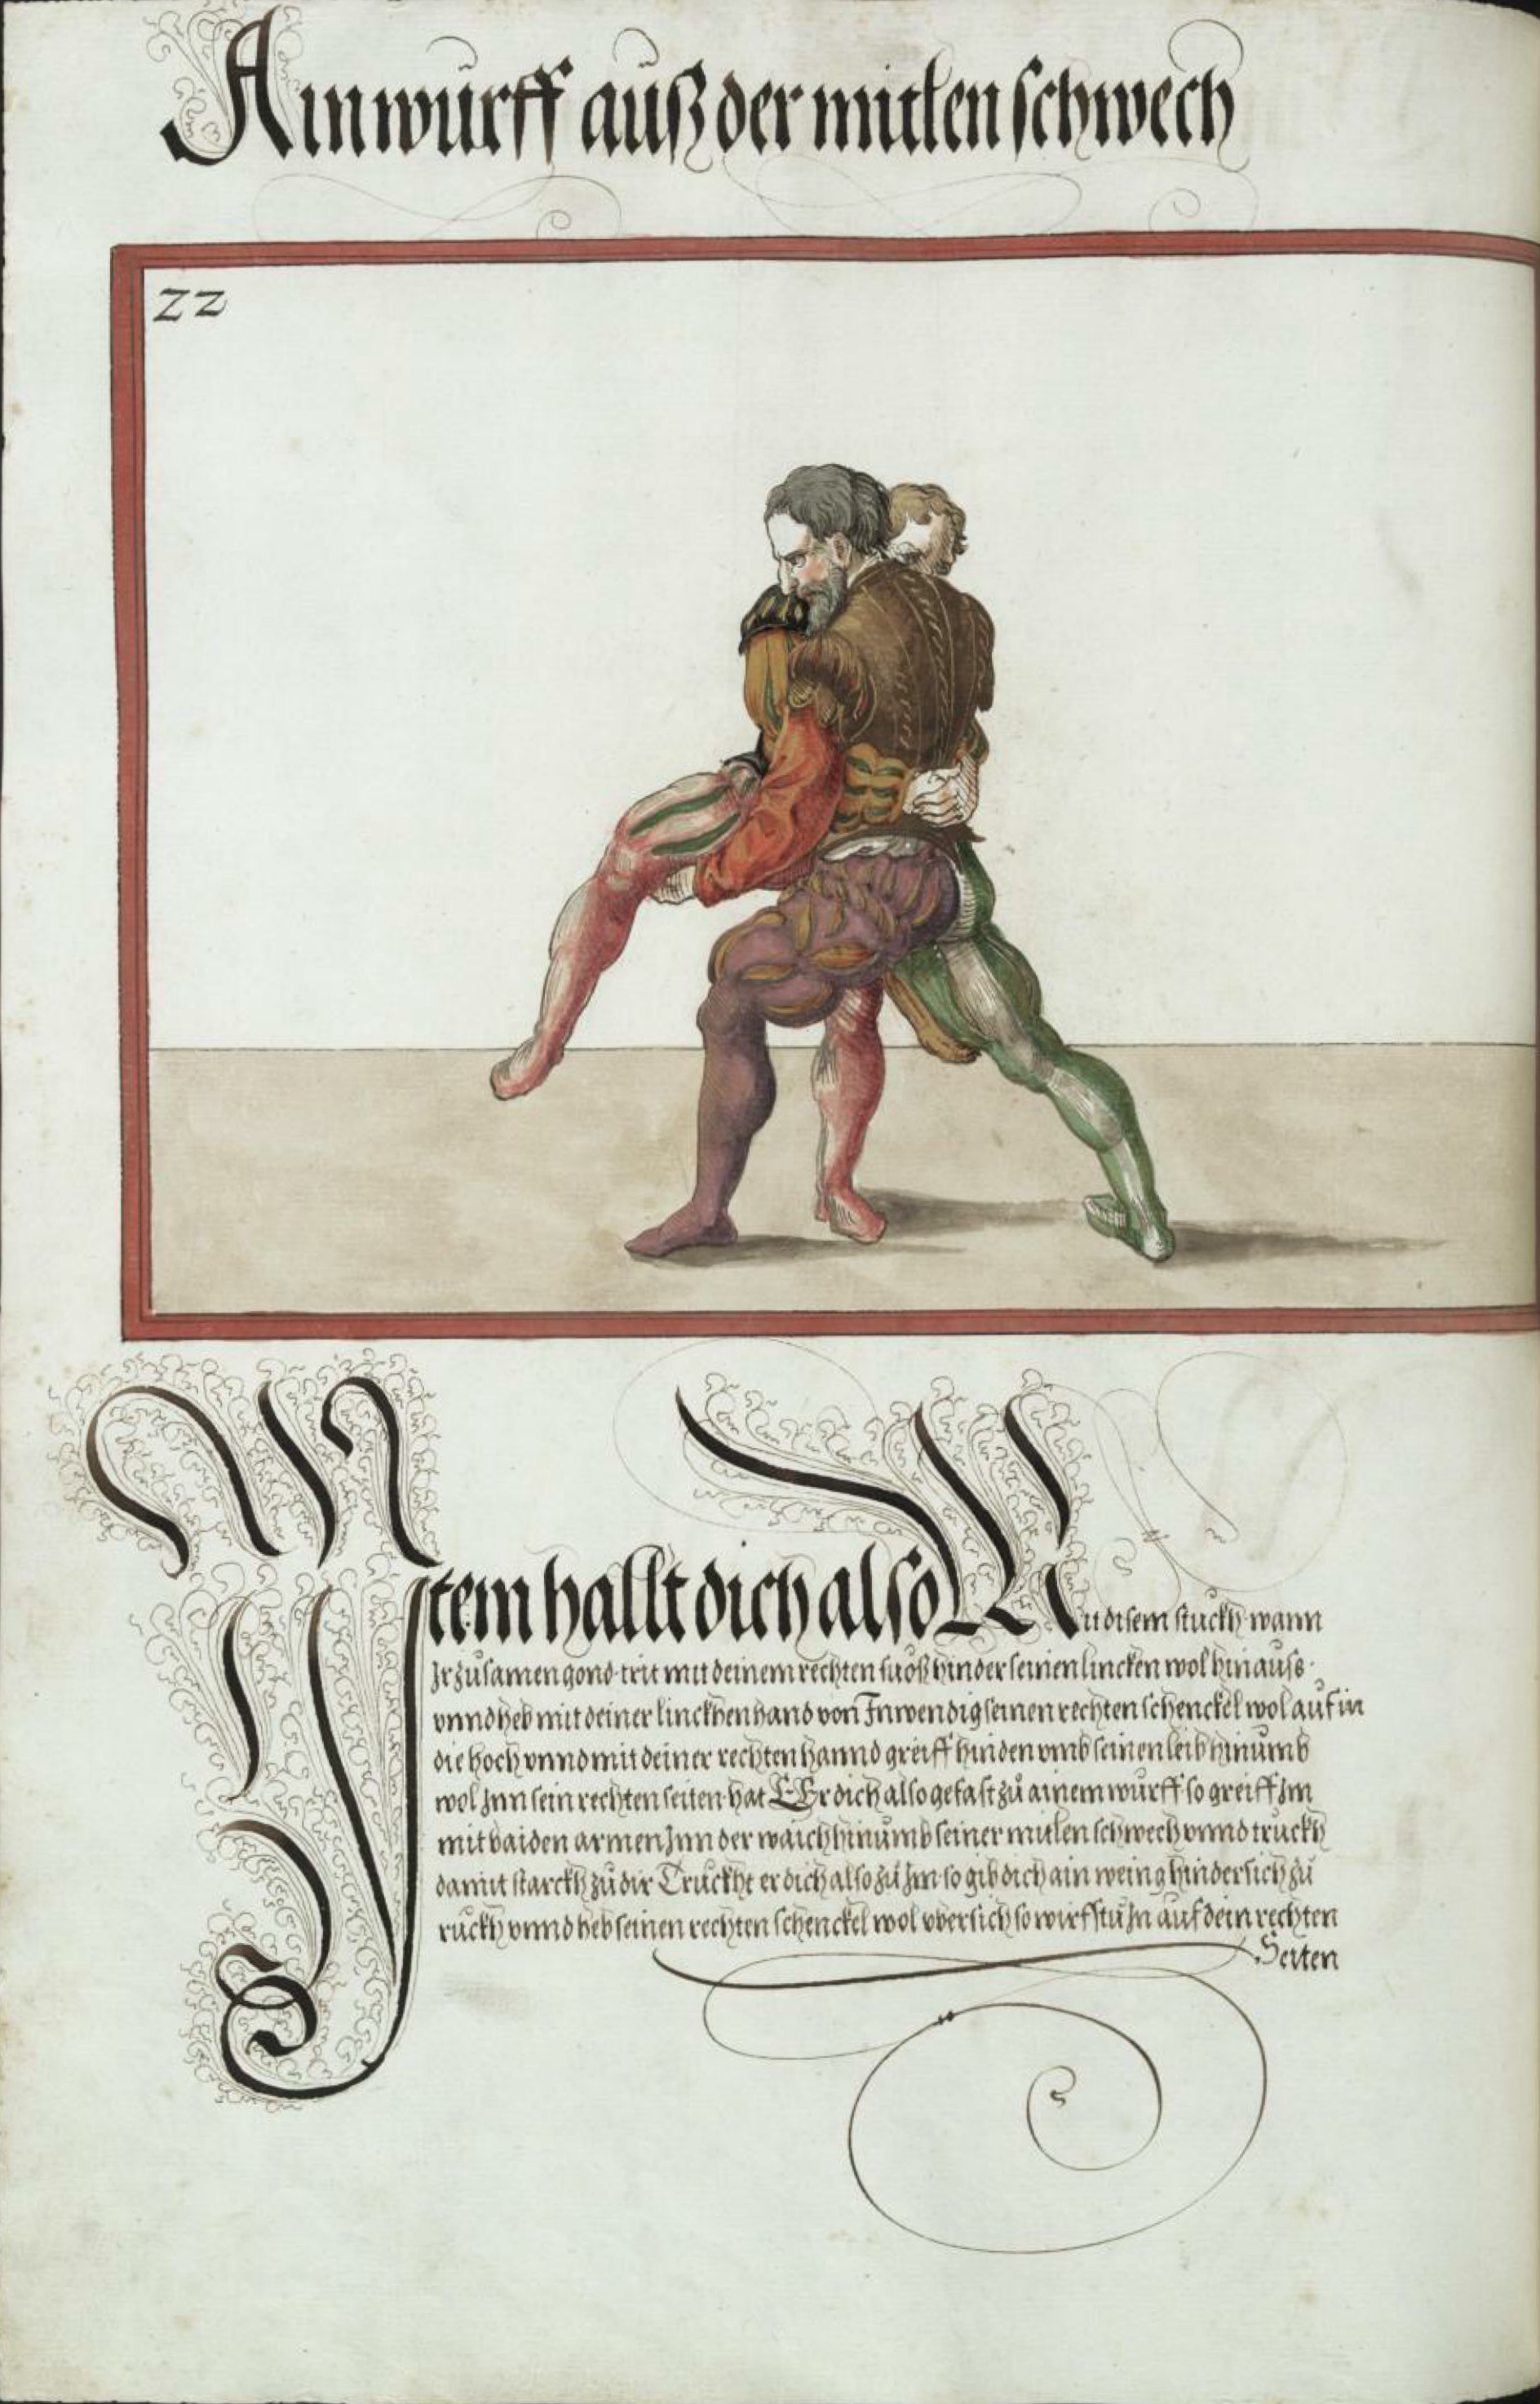 Ain wurff auß der mitlen schwech
22
Item hallt dich also In disem stuckh wann
Ir zusamen gond trit mit deinem rechten fuoß hinder seinen lincken wol hinauss
unnd heb mit deiner linckhen hand von Inwendig seinen rechten schenckel wol auf in
die hoch unnd mit deiner rechten hannd greiff hinden umb seinen leib hinumb
wol Inn sein rechten seiten hat Er dich also gefast zů ainem wurff so greiff Im
mit baiden armen Inn der waich hinumb seiner mitlen schwech unnd truckh
damit starckh zů dir Truckht er dich also zů Im so gib dich ain weing hindersich zů
ruckh unnd heb seinen rechten schenckel wol ubersich so wirfstu In auf dein rechten
Seiten